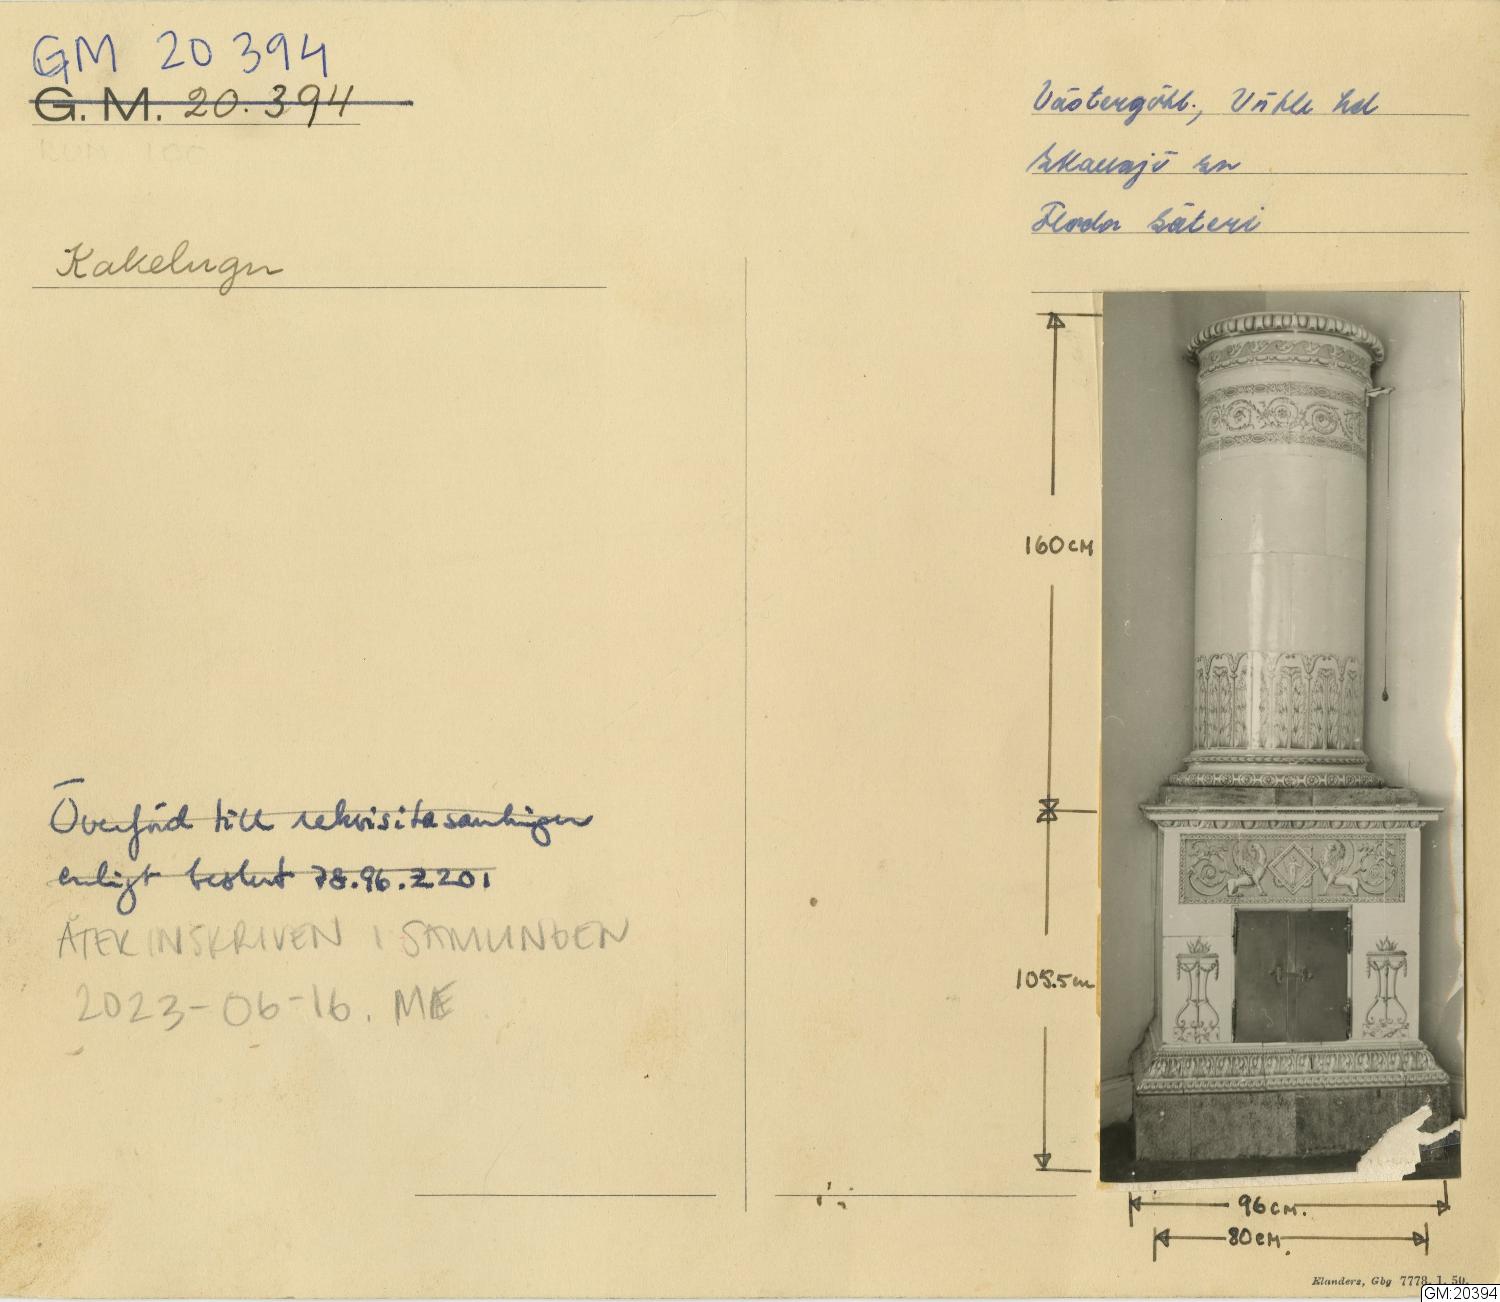 GM 20 394
G.M. 20.394
RUM 100
Västergötl., Vättle hd
Skallsjö sn
Floda Säteri
Kakelugn
160 CM
Överförd till rekvisitasamlingen
enligt beslut 78.96.2201
ÅTERINSKRIVEN I SAMLINGEN
2023-06-16. ME
105.5 cm
96 CM.
80 CM.
Elanders, Gbg 7778. 1. 50.
GM:20394